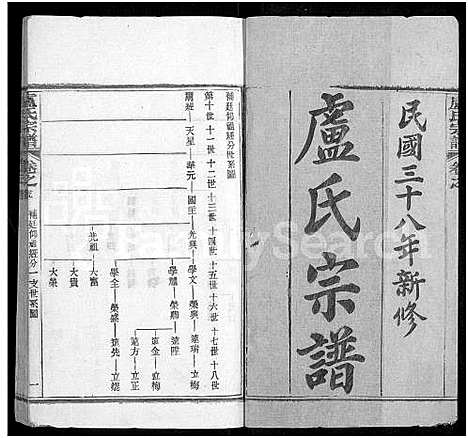 民國三十八年新修
盧氏宗譜
盧氏宗譜 卷之
補延仰祖遷分世系圖
第十世 十一世 十二世 十三世 十四世 十五世 十六世 十七世 十八世
天星 華元 國 光興 學文 榮興 蓮瑞 立梅
學旭 榮 蓮陞
金 立梅
學全 榮盛 蓮方 立正
蓮先 立
光祖 大富
大貴
大榮
盧氏宗譜 卷之 補延仰祖遷分 支世系圖 一
FamilySearch